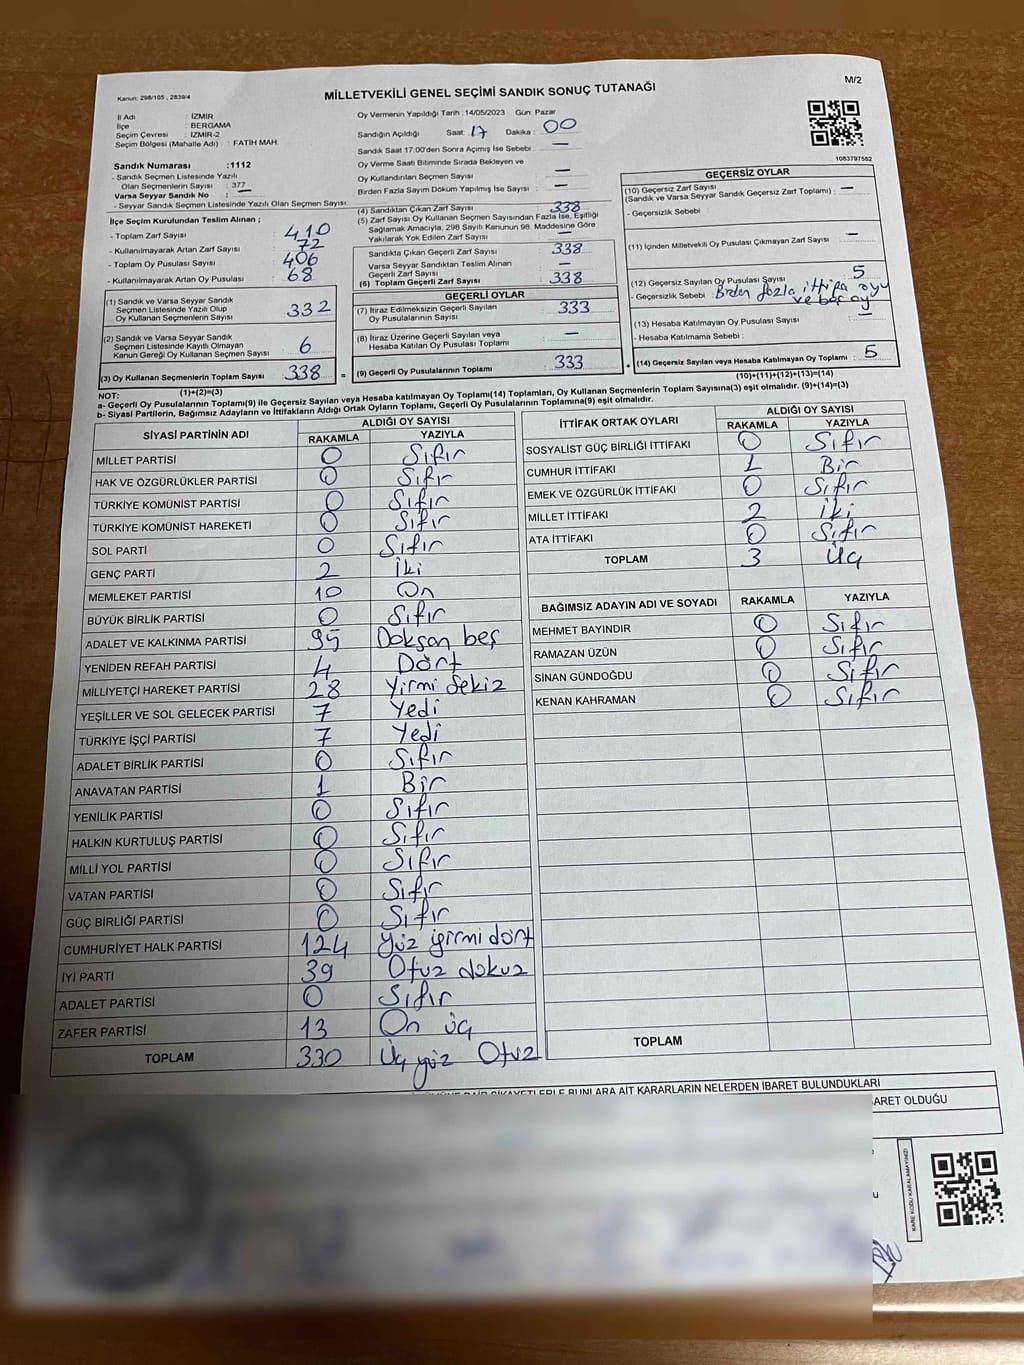 M/2
Kanun: 298/105 , 2839/4
MİLLETVEKİLİ GENEL SEÇİMİ SANDIK SONUÇ TUTANAĞI
İl Adı : İZMİR
İlçe : BERGAMA
Seçim Çevresi : İZMİR-2
Seçim Bölgesi (Mahalle Adı) : FATİH MAH.
Sandık Numarası :1112
- Sandık Seçmen Listesinde Yazılı
Olan Seçmenlerin Sayısı : 377
Varsa Seyyar Sandık No : —
- Seyyar Sandık Seçmen Listesinde Yazılı Olan Seçmen Sayısı:
İlçe Seçim Kurulundan Teslim Alınan ;
- Toplam Zarf Sayısı : 410
- Kullanılmayarak Artan Zarf Sayısı : 72
- Toplam Oy Pusulası Sayısı : 406
- Kullanılmayarak Artan Oy Pusulası : 68
(1) Sandık ve Varsa Seyyar Sandık
Seçmen Listesinde Yazılı Olup
Oy Kullanan Seçmenlerin Sayısı : 332
(2) Sandık ve Varsa Seyyar Sandık
Seçmen Listesinde Kayıtlı Olmayan
Kanun Gereği Oy Kullanan Seçmen Sayısı : 6
(3) Oy Kullanan Seçmenlerin Toplam Sayısı : 338
(1)+(2)=(3)
Oy Vermenin Yapıldığı Tarih :14/05/2023 Gün: Pazar
Sandığın Açıldığı Saat: 17 Dakika : 00
Sandık Saat 17.00'den Sonra Açımış İse Sebebi : —
Oy Verme Saati Bitiminde Sırada Bekleyen ve
Oy Kullandırılan Seçmen Sayısı : —
Birden Fazla Sayım Döküm Yapılmış İse Sayısı : —
(4) Sandıktan Çıkan Zarf Sayısı : 338
(5) Zarf Sayısı Oy Kullanan Seçmen Sayısından Fazla İse, Eşitliği
Sağlamak Amacıyla; 298 Sayılı Kanunun 98. Maddesine Göre
Yakılarak Yok Edilen Zarf Sayısı : —
Sandıkta Çıkan Geçerli Zarf Sayısı : 338
Varsa Seyyar Sandıktan Teslim Alınan
Geçerli Zarf Sayısı : —
(6) Toplam Geçerli Zarf Sayısı : 338
GEÇERLİ OYLAR
(7) İtiraz Edilmeksizin Geçerli Sayılan
Oy Pusulalarının Sayısı : 333
(8) İtiraz Üzerine Geçerli Sayılan veya
Hesaba Katılan Oy Pusulası Toplamı : —
= (9) Geçerli Oy Pusulalarının Toplamı : 333
1083797582
GEÇERSİZ OYLAR
(10) Geçersiz Zarf Sayısı : —
(Sandık ve Varsa Seyyar Sandık Geçersiz Zarf Toplamı)
- Geçersizlik Sebebi
(11) İçinden Milletvekili Oy Pusulası Çıkmayan Zarf Sayısı : —
(12) Geçersiz Sayılan Oy Pusulası Sayısı : 5
- Geçersizlik Sebebi : Birden fazla ittifa oyu
ve boş oy
(13) Hesaba Katılmayan Oy Pusulası Sayısı : —
- Hesaba Katılmama Sebebi :
+ (14) Geçersiz Sayılan veya Hesaba Katılmayan Oy Toplamı : 5
(10)+(11)+(12)+(13)=(14)
NOT:
a- Geçerli Oy Pusulalarının Toplamı(9) ile Geçersiz Sayılan veya Hesaba katılmayan Oy Toplamı(14) Toplamları, Oy Kullanan Seçmenlerin Toplam Sayısına(3) eşit olmalıdır. (9)+(14)=(3)
b- Siyasi Partilerin, Bağımsız Adayların ve İttifakların Aldığı Ortak Oyların Toplamı, Geçerli Oy Pusulalarının Toplamına(9) eşit olmalıdır.
SİYASİ PARTİNİN ADI ALDIĞI OY SAYISI
RAKAMLA YAZIYLA
MİLLET PARTİSİ 0 Sıfır
HAK VE ÖZGÜRLÜKLER PARTİSİ 0 Sıfır
TÜRKİYE KOMÜNİST PARTİSİ 0 Sıfır
TÜRKİYE KOMÜNİST HAREKETİ 0 Sıfır
SOL PARTİ 0 Sıfır
GENÇ PARTİ 2 İki
MEMLEKET PARTİSİ 10 On
BÜYÜK BİRLİK PARTİSİ 0 Sıfır
ADALET VE KALKINMA PARTİSİ 95 Doksan beş
YENİDEN REFAH PARTİSİ 4 Dört
MİLLİYETÇİ HAREKET PARTİSİ 28 Yirmi Sekiz
YEŞİLLER VE SOL GELECEK PARTİSİ 7 Yedi
TÜRKİYE İŞÇİ PARTİSİ 7 Yedi
ADALET BİRLİK PARTİSİ 0 Sıfır
ANAVATAN PARTİSİ 1 Bir
YENİLİK PARTİSİ 0 Sıfır
HALKIN KURTULUŞ PARTİSİ 0 Sıfır
MİLLİ YOL PARTİSİ 0 Sıfır
VATAN PARTİSİ 0 Sıfır
GÜÇ BİRLİĞİ PARTİSİ 0 Sıfır
CUMHURİYET HALK PARTİSİ 124 Yüz yirmi dört
İYİ PARTİ 39 Otuz dokuz
ADALET PARTİSİ 0 Sıfır
ZAFER PARTİSİ 13 On üç
TOPLAM 330 Üç yüz Otuz
İTTİFAK ORTAK OYLARI ALDIĞI OY SAYISI
RAKAMLA YAZIYLA
SOSYALİST GÜÇ BİRLİĞİ İTTİFAKI 0 Sıfır
CUMHUR İTTİFAKI 1 Bir
EMEK VE ÖZGÜRLÜK İTTİFAKI 0 Sıfır
MİLLET İTTİFAKI 2 İki
ATA İTTİFAKI 0 Sıfır
TOPLAM 3 Üç
BAĞIMSIZ ADAYIN ADI VE SOYADI RAKAMLA YAZIYLA
MEHMET BAYINDIR 0 Sıfır
RAMAZAN ÜZÜN 0 Sıfır
SİNAN GÜNDOĞDU 0 Sıfır
KENAN KAHRAMAN 0 Sıfır
TOPLAM
ŞİKAYETLERLE BUNLARA AİT KARARLARIN NELERDEN İBARET BULUNDUKLARI
BARET OLDUĞU
KARE KODU KARALAMAYINIZ!